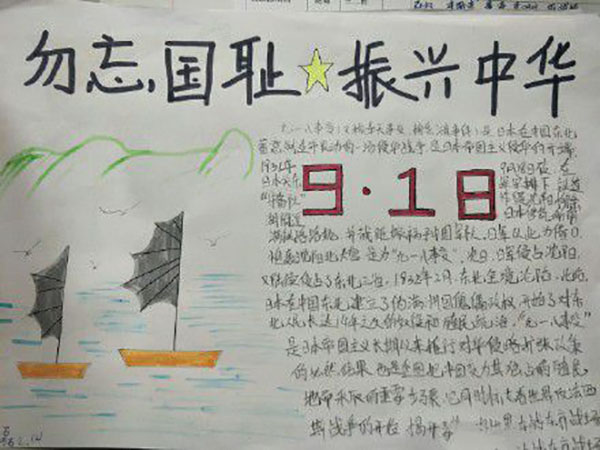 勿忘国耻 振兴中华
九一八事变(又称奉天事变、柳条湖事件)是日本在中国东北
蓄意制造并发动的一场侵华战争,是日本帝国主义侵华的开端
1931年
9月18日夜,在
日本关东
安排下,铁道
9·18
路轨,并栽赃嫁祸于中国军队。日军以此为借口
炮轰沈阳北大营,是为“九一八事变”。次日,日军侵占沈阳,
又陆续侵占了东北三省。1932年2月,东北全境沦陷。此后,
日本在中国东北建立了伪满洲国傀儡政权,开始了对东
北人民长达14年之久的奴役和殖民统治。“九一八事变”
是日本帝国主义长期以来推行对华侵略扩张政策
的必然结果,也是企图把中国变为其独占的殖民
地而采取的重要步骤。它同时标志着世界反法西
斯战争的开始,揭开了